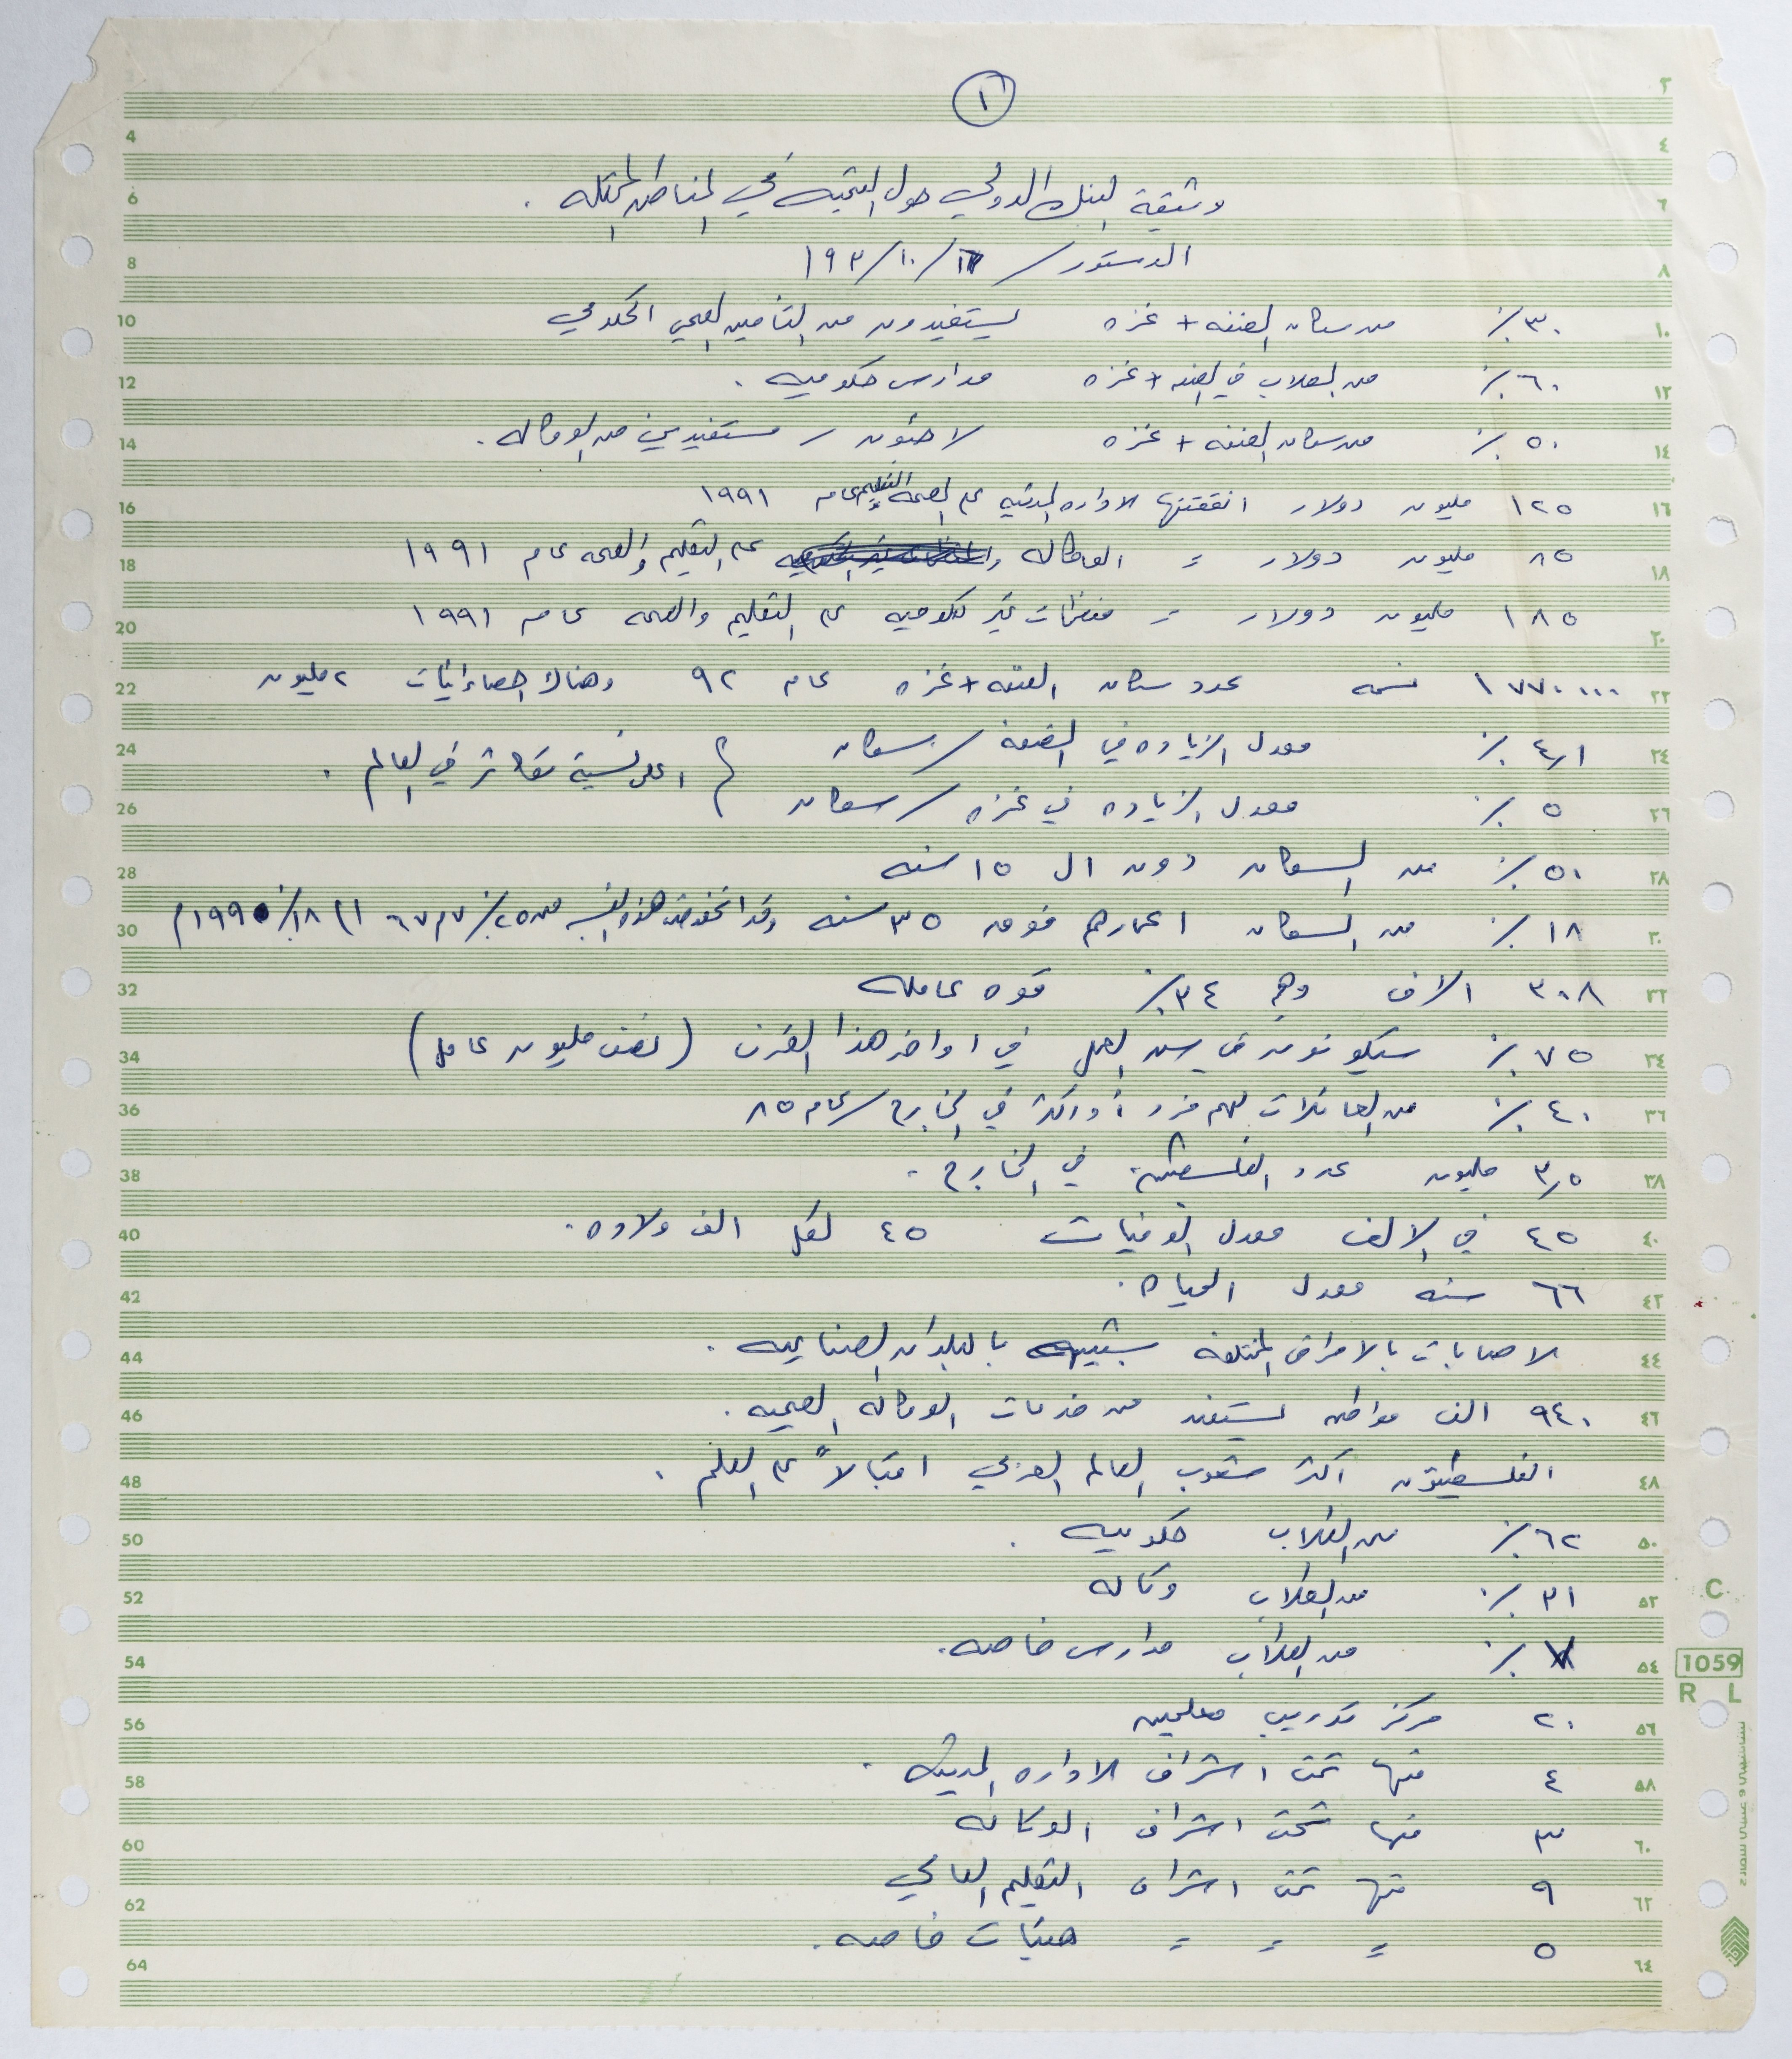 ١
وثيقة البنك الدولي حول التنمية في المناطق المحتله .
الدستور / ١٦/ ١٠/ ١٩٣
٣٠٪ من سكان الضفه + غزه يستفيدون من التأمين الصحي الحكومي
٦٠٪ من الطلاب في الضفه + غزه مدارس حكوميه .
٥٠٪ من سكان الضفه + غزه لاجئون / مستفيدين من الوكاله .
١٢٥ مليون دولار انفقتها الاداره المدنيه على الصحه والتعليم عام ١٩٩١
٨٥ مليون دولار = الوكاله على التعليم والصحه عام ١٩٩١
١٨٥ مليون دولار = منظمات غير حكوميه على التعليم والصحه عام ١٩٩١
١٧٧٠٠٠٠ نسمه عدد سكان الضفه + غزه عام ٩٢ وهناك احصائيات ٢ مليون
٤٫١٪ معدل الزياده في الضفه / سكان } اعلى نسبة تكاثر في العالم .
٥٪ معدل الزياده في غزه / سكان
٥٠٪ من السكان دون ال ١٥ سنه
١٨٪ من السكان اعمارهم فوق ٣٥ سنه وقد انخفضت هذه النسبه من ٢٥٪ ٦٧م الى ١٨٪ ١٩٩٠م
٣٠٨ الاف وهم ٣٤٪ قوه عامله
٧٥٪ سيكونون في سن العمل في اواخر هذا القرن (نصف مليون عامل)
٤٠٪ من العائلات لهم فرد أو اكثر في الخارج / عام ٨٥
٣٫٥ مليون عدد الفلسطينين في الخارج .
٤٥ في الالف معدل الوفيات ٤٥ لكل الف ولاده .
٦٦ سنه معدل الحياه .
الاصابات بالامراض المختلفه شبيهه بالبلدان الصناعيه .
٩٤٠ الف مواطن يستفيد من خدمات الوكاله الصحيه .
الفلسطينيون اكثر شعوب العالم العربي اقبالاً على العلم .
٦٢٪ من الطلاب حكوميه .
٣١٪ من الطلاب وكاله
٧٪ من الطلاب مدارس خاصه .
٢٠ مركز تدريب معلمين
٤ منها تحت اشراف الاداره المدنيه .
٣ منها تحت اشراف الوكاله
٩ منها تحت اشراف التعليم العالي
٥ = = = هيئات خاصه .
1059
R L
C